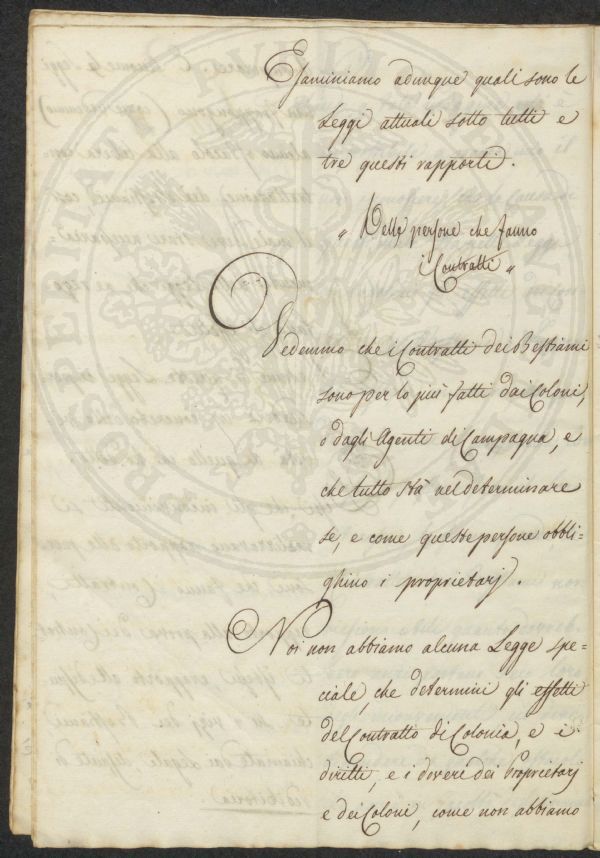 Esaminiamo adunque quali sono le
Leggi attuali sotto tutti e
tre questi rapporti.
" Delle persone che fanno
i Contratti "
Vedemmo che i Contratti dei Bestiami
sono per lo più fatti dai Coloni,
o dagli Agenti di Campagna, e
che tutto stà nel determinare
se, e come queste persone obbli=
ghino i proprietarj.
Noi non abbiamo alcuna Legge spe=
ciale, che determini gli effetti
del Contratto di Colonia, e i
diritti, e i dovere dei Proprietarj
e dei Coloni, come non abbiamo